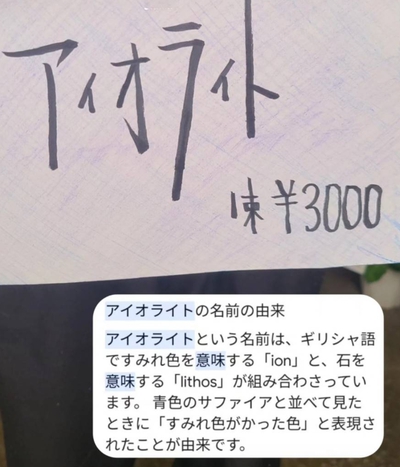 アィオラィト
1束 ¥3000
アイオライトの名前の由来
アイオライトという名前は、ギリシャ語
ですみれ色を意味する「ion」と、石を
意味する「lithos」が組み合わさってい
ます。 青色のサファイアと並べて見た
ときに「すみれ色がかった色」と表現さ
れたことが由来です。